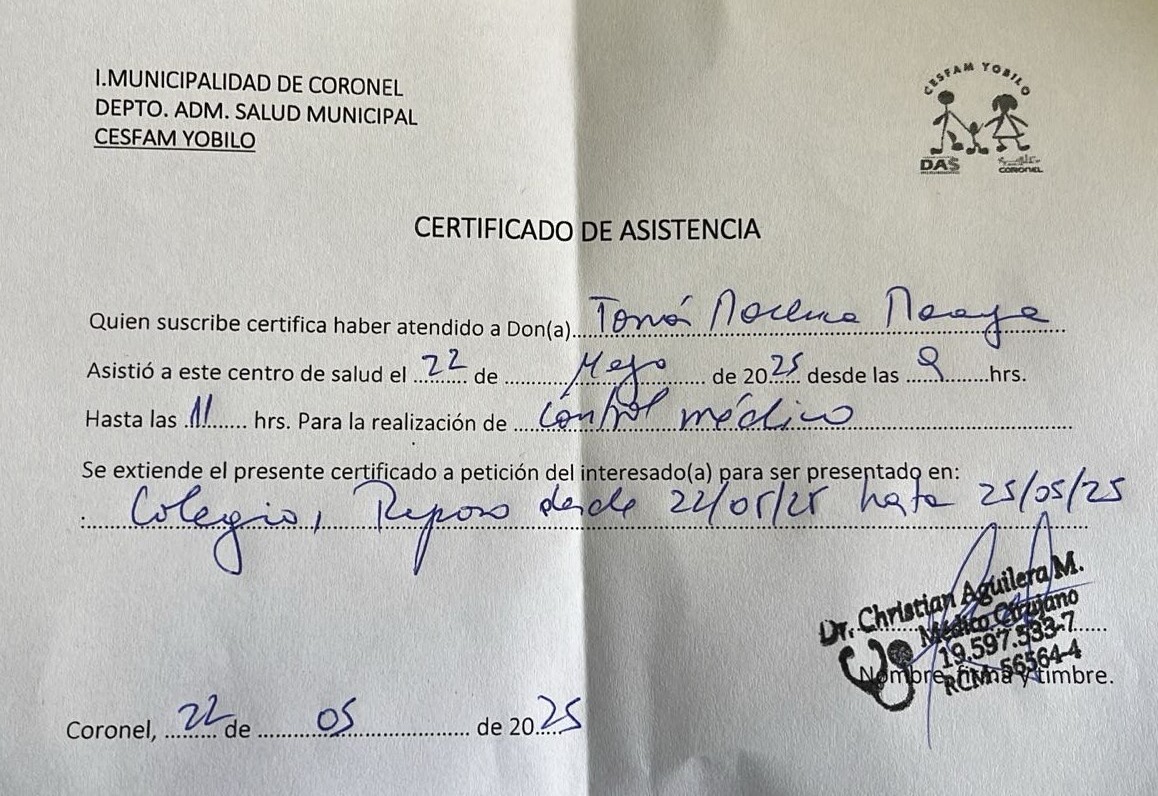 I.MUNICIPALIDAD DE CORONEL
DEPTO. ADM. SALUD MUNICIPAL
CESFAM YOBILO
CESFAM YOBILO
DAS
CORONEL
CERTIFICADO DE ASISTENCIA
Quien suscribe certifica haber atendido a Don(a)... Tomás
Asistió a este centro de salud el 22 de Mayo de 2025 desde las 9 hrs.
Hasta las 11 hrs. Para la realización de Control médico
Se extiende el presente certificado a petición del interesado(a) para ser presentado en:
: Colegio, Reposo desde 22/05/25 hasta 25/05/25
Dr. Christian Aguilera M.
Médico Cirujano
19.597.533-7
RCM: 56564-4
Nombre, firma y timbre.
Coronel, 22 de 05 de 2025